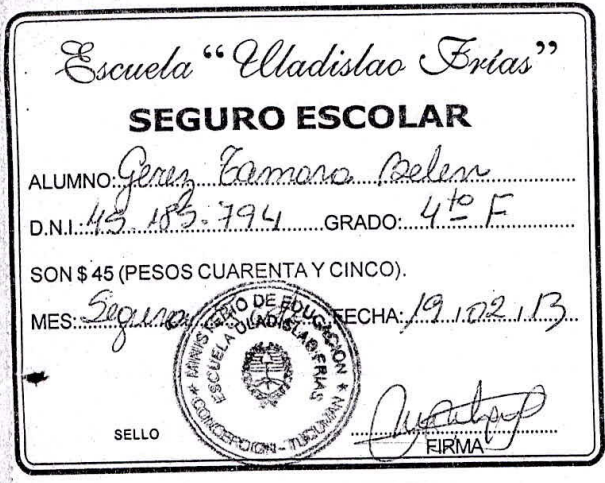 Escuela “Uladislao Frías”
SEGURO ESCOLAR
ALUMNO: Gerez Tamara Belen
D.N.I.: 45.185.794 GRADO: 4to F
SON $ 45 (PESOS CUARENTA Y CINCO).
MES: Seguro FECHA: 19.02.13
MINISTERIO DE EDUCACION
ESCUELA ULADISLAO FRIAS
CONCEPCION - TUCUMAN
SELLO
FIRMA